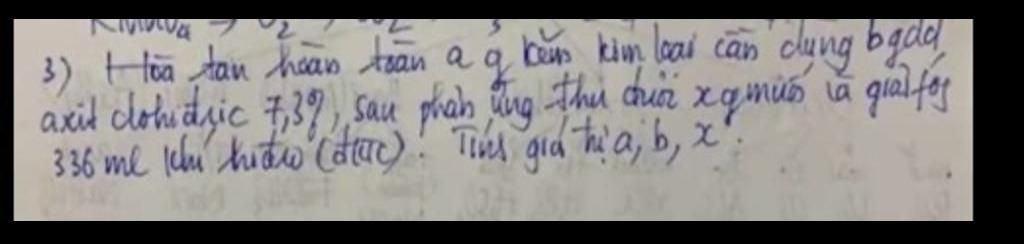 3) Hoà tan hoàn toàn a g kẽm kim loại cần dụng b g dd
axit clohiđric 7,3%, sau phản ứng thu được x g muối và giải fóg
336 ml khí hiđro (đktc). Tính giá trị a, b, x.